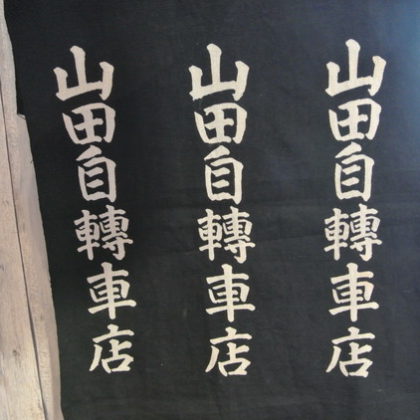 山田自轉車店
山田自轉車店
山田自轉車店